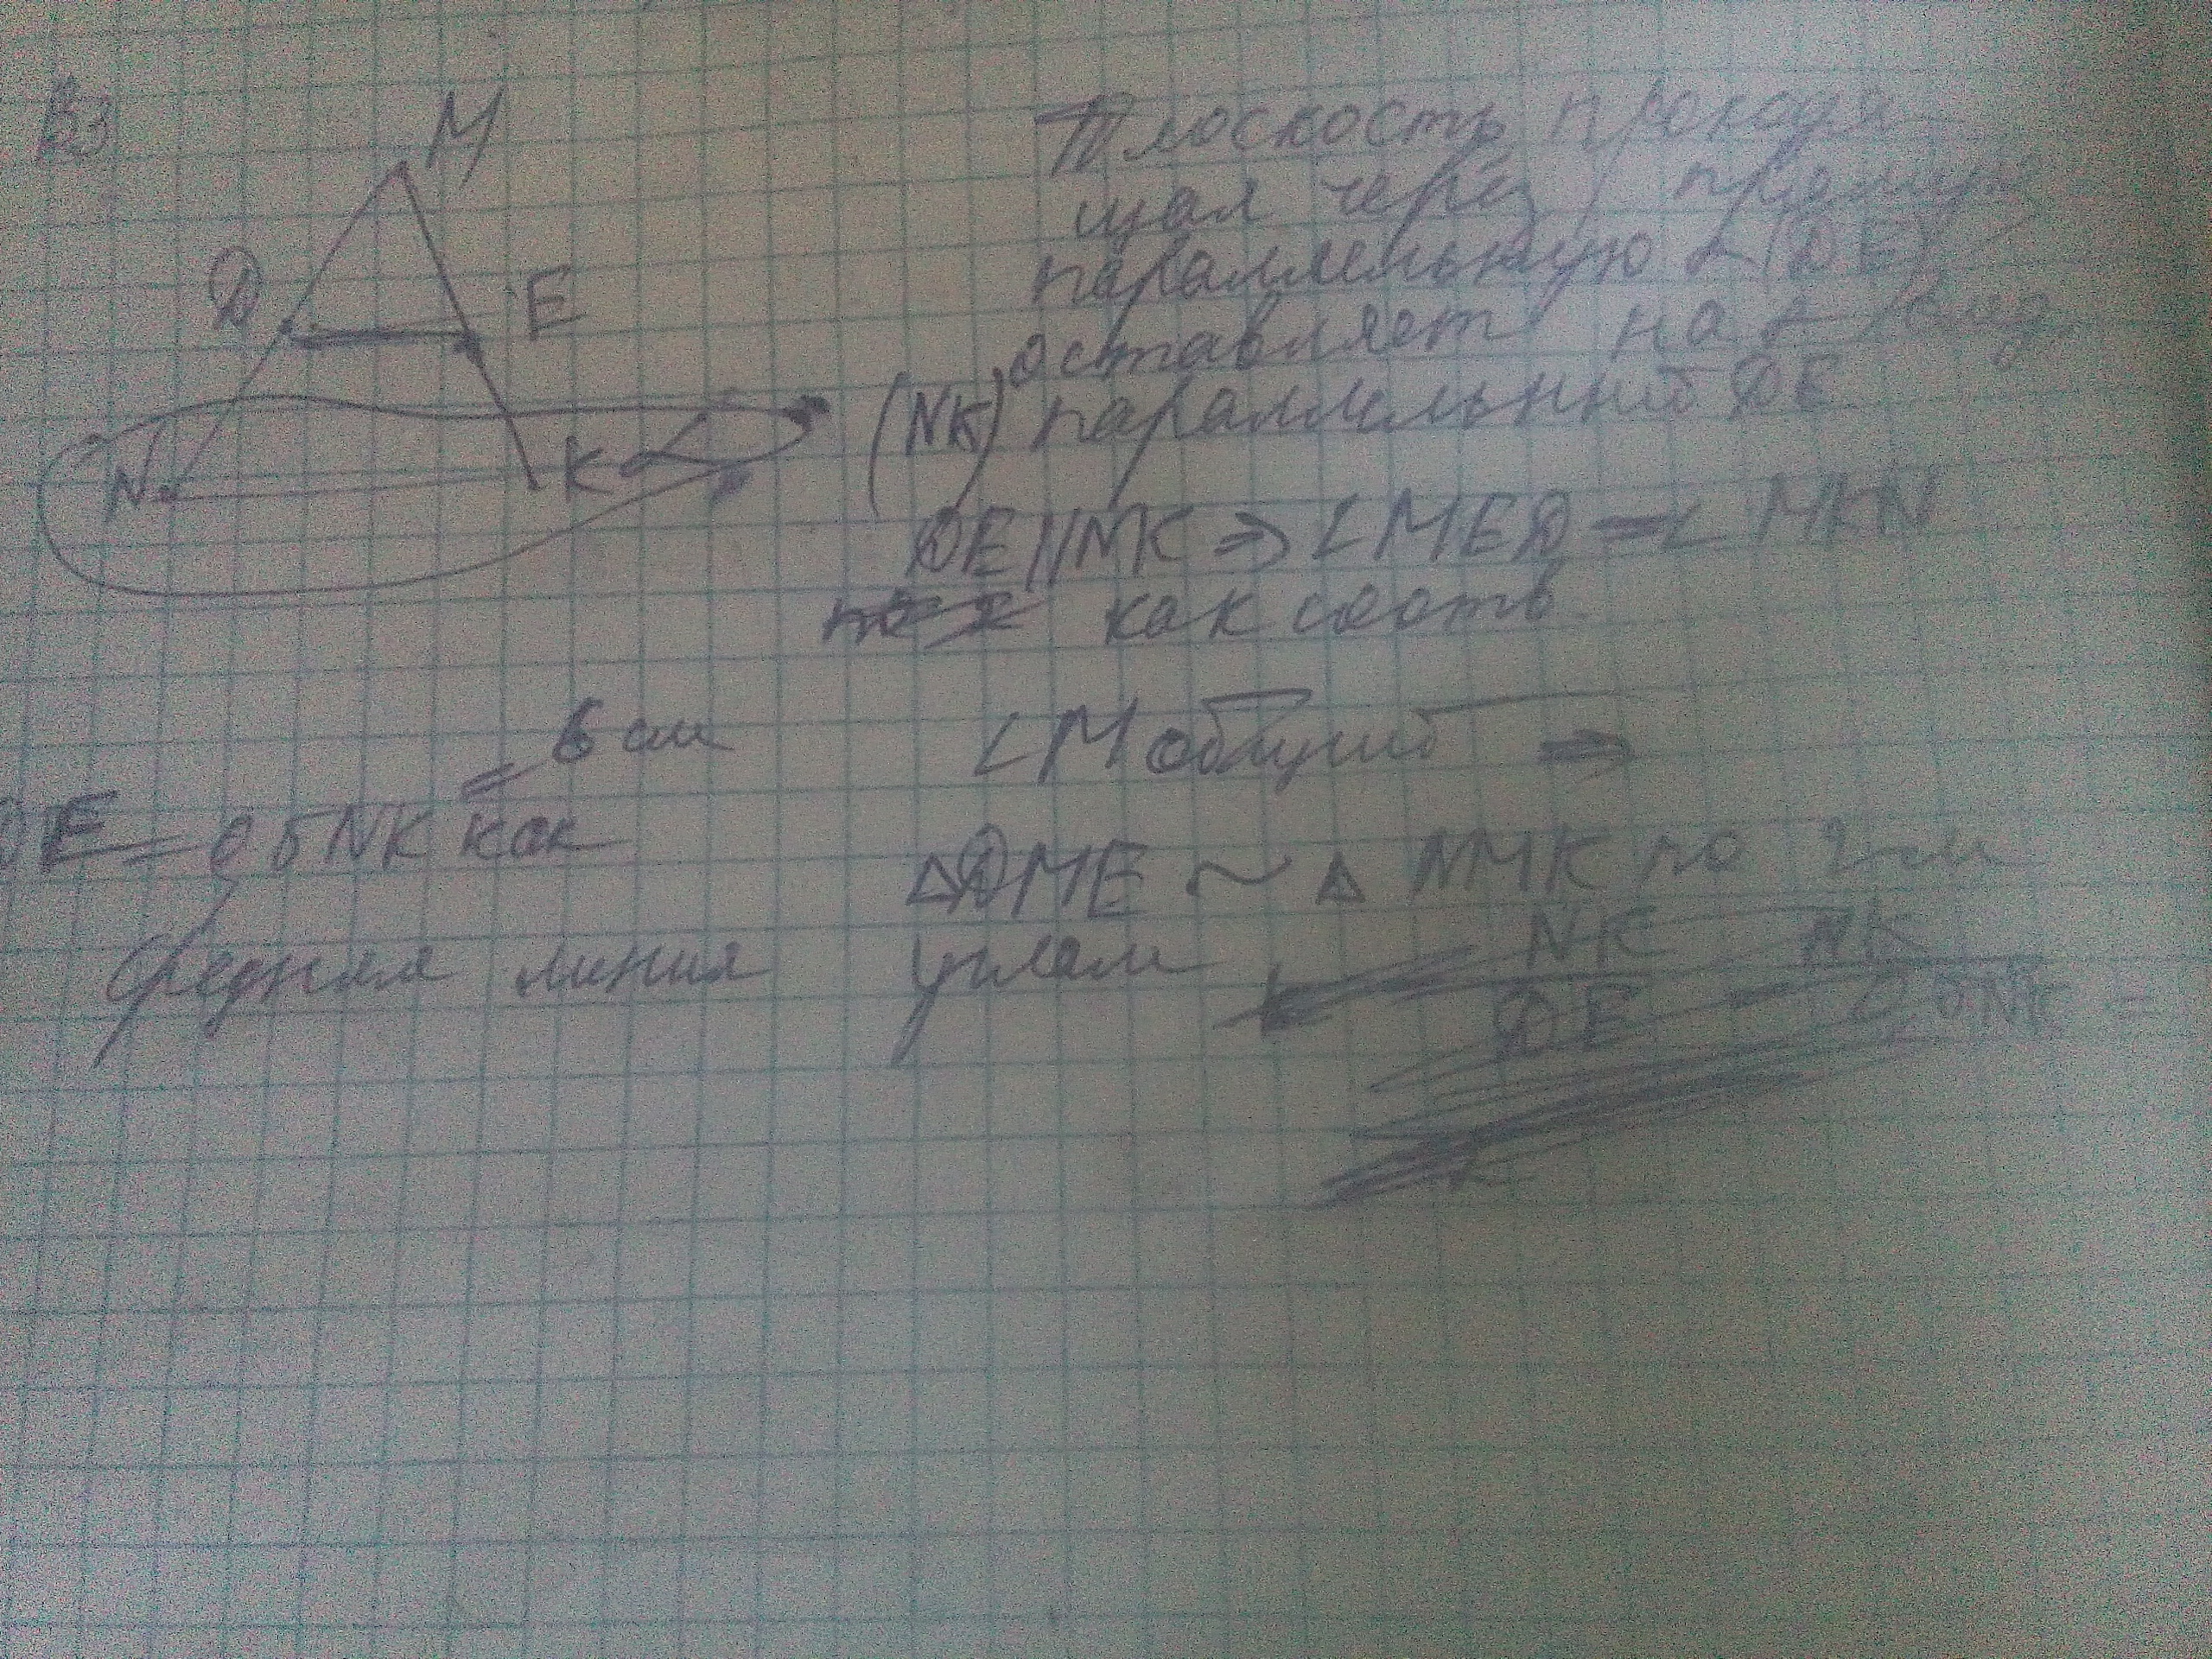 В3
M
D
E
N
K
α
Плоскость проходя
щая через прямую
параллельную α (DE)
оставляет на α след
(NK) параллельный DE
DE || NK ⇒ ∠MED = ∠MKN
как соотв
∠M общий ⇒
△DME ~ △NMK по 2-м
углам
NK
DE
= 6 см
DE = 0,5NK как
средняя линия